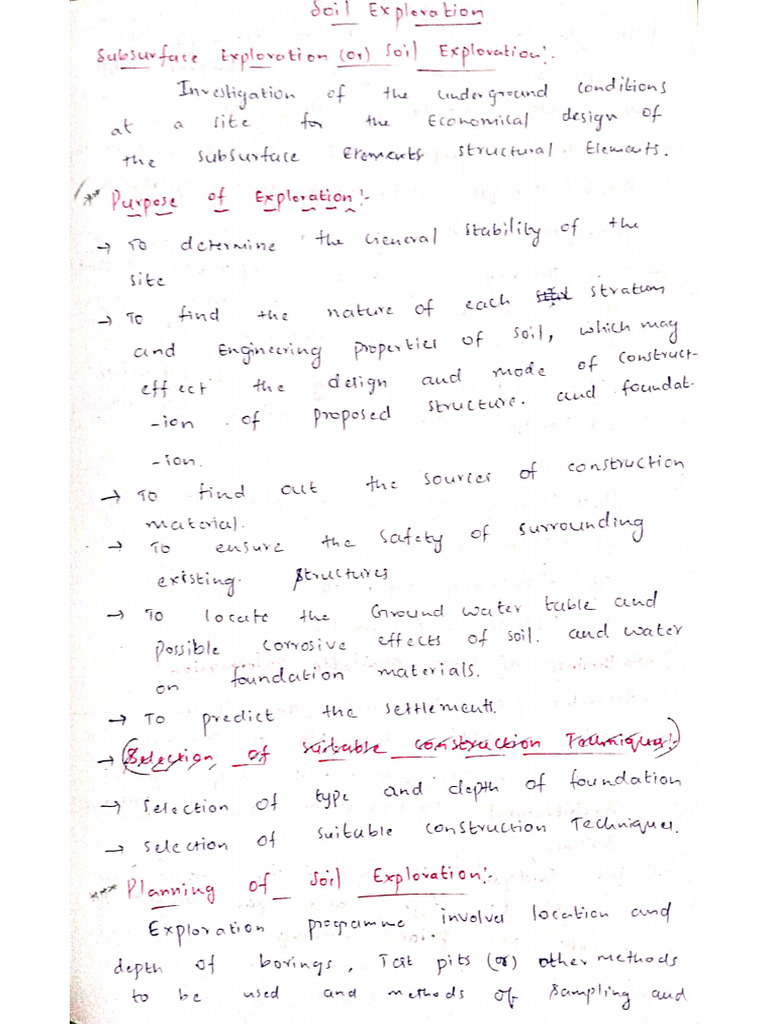 Soil Exploration
Subsurface Exploration (or) Soil Exploration:-
Investigation of the underground conditions
at a site for the Economical design of
the subsurface Elements structural Elements.
** Purpose of Exploration:-
→ To determine the General stability of the
site
→ To find the nature of each stratum
and Engineering properties of soil, which may
effect the design and mode of construct-
-ion of proposed structure. and foundat-
-ion.
→ To find out the sources of construction
material.
→ To ensure the safety of surrounding
existing. structures
→ To locate the Ground water table and
possible corrosive effects of soil. and water
on foundation materials.
→ To predict the settlements.
→ (Selection of suitable construction Techniques:-)
→ Selection of type and depth of foundation
→ Selection of suitable construction Techniques.
*** Planning of Soil Exploration:-
Exploration programme involves location and
depth of borings, Test pits (or) other methods
to be used and methods of sampling and